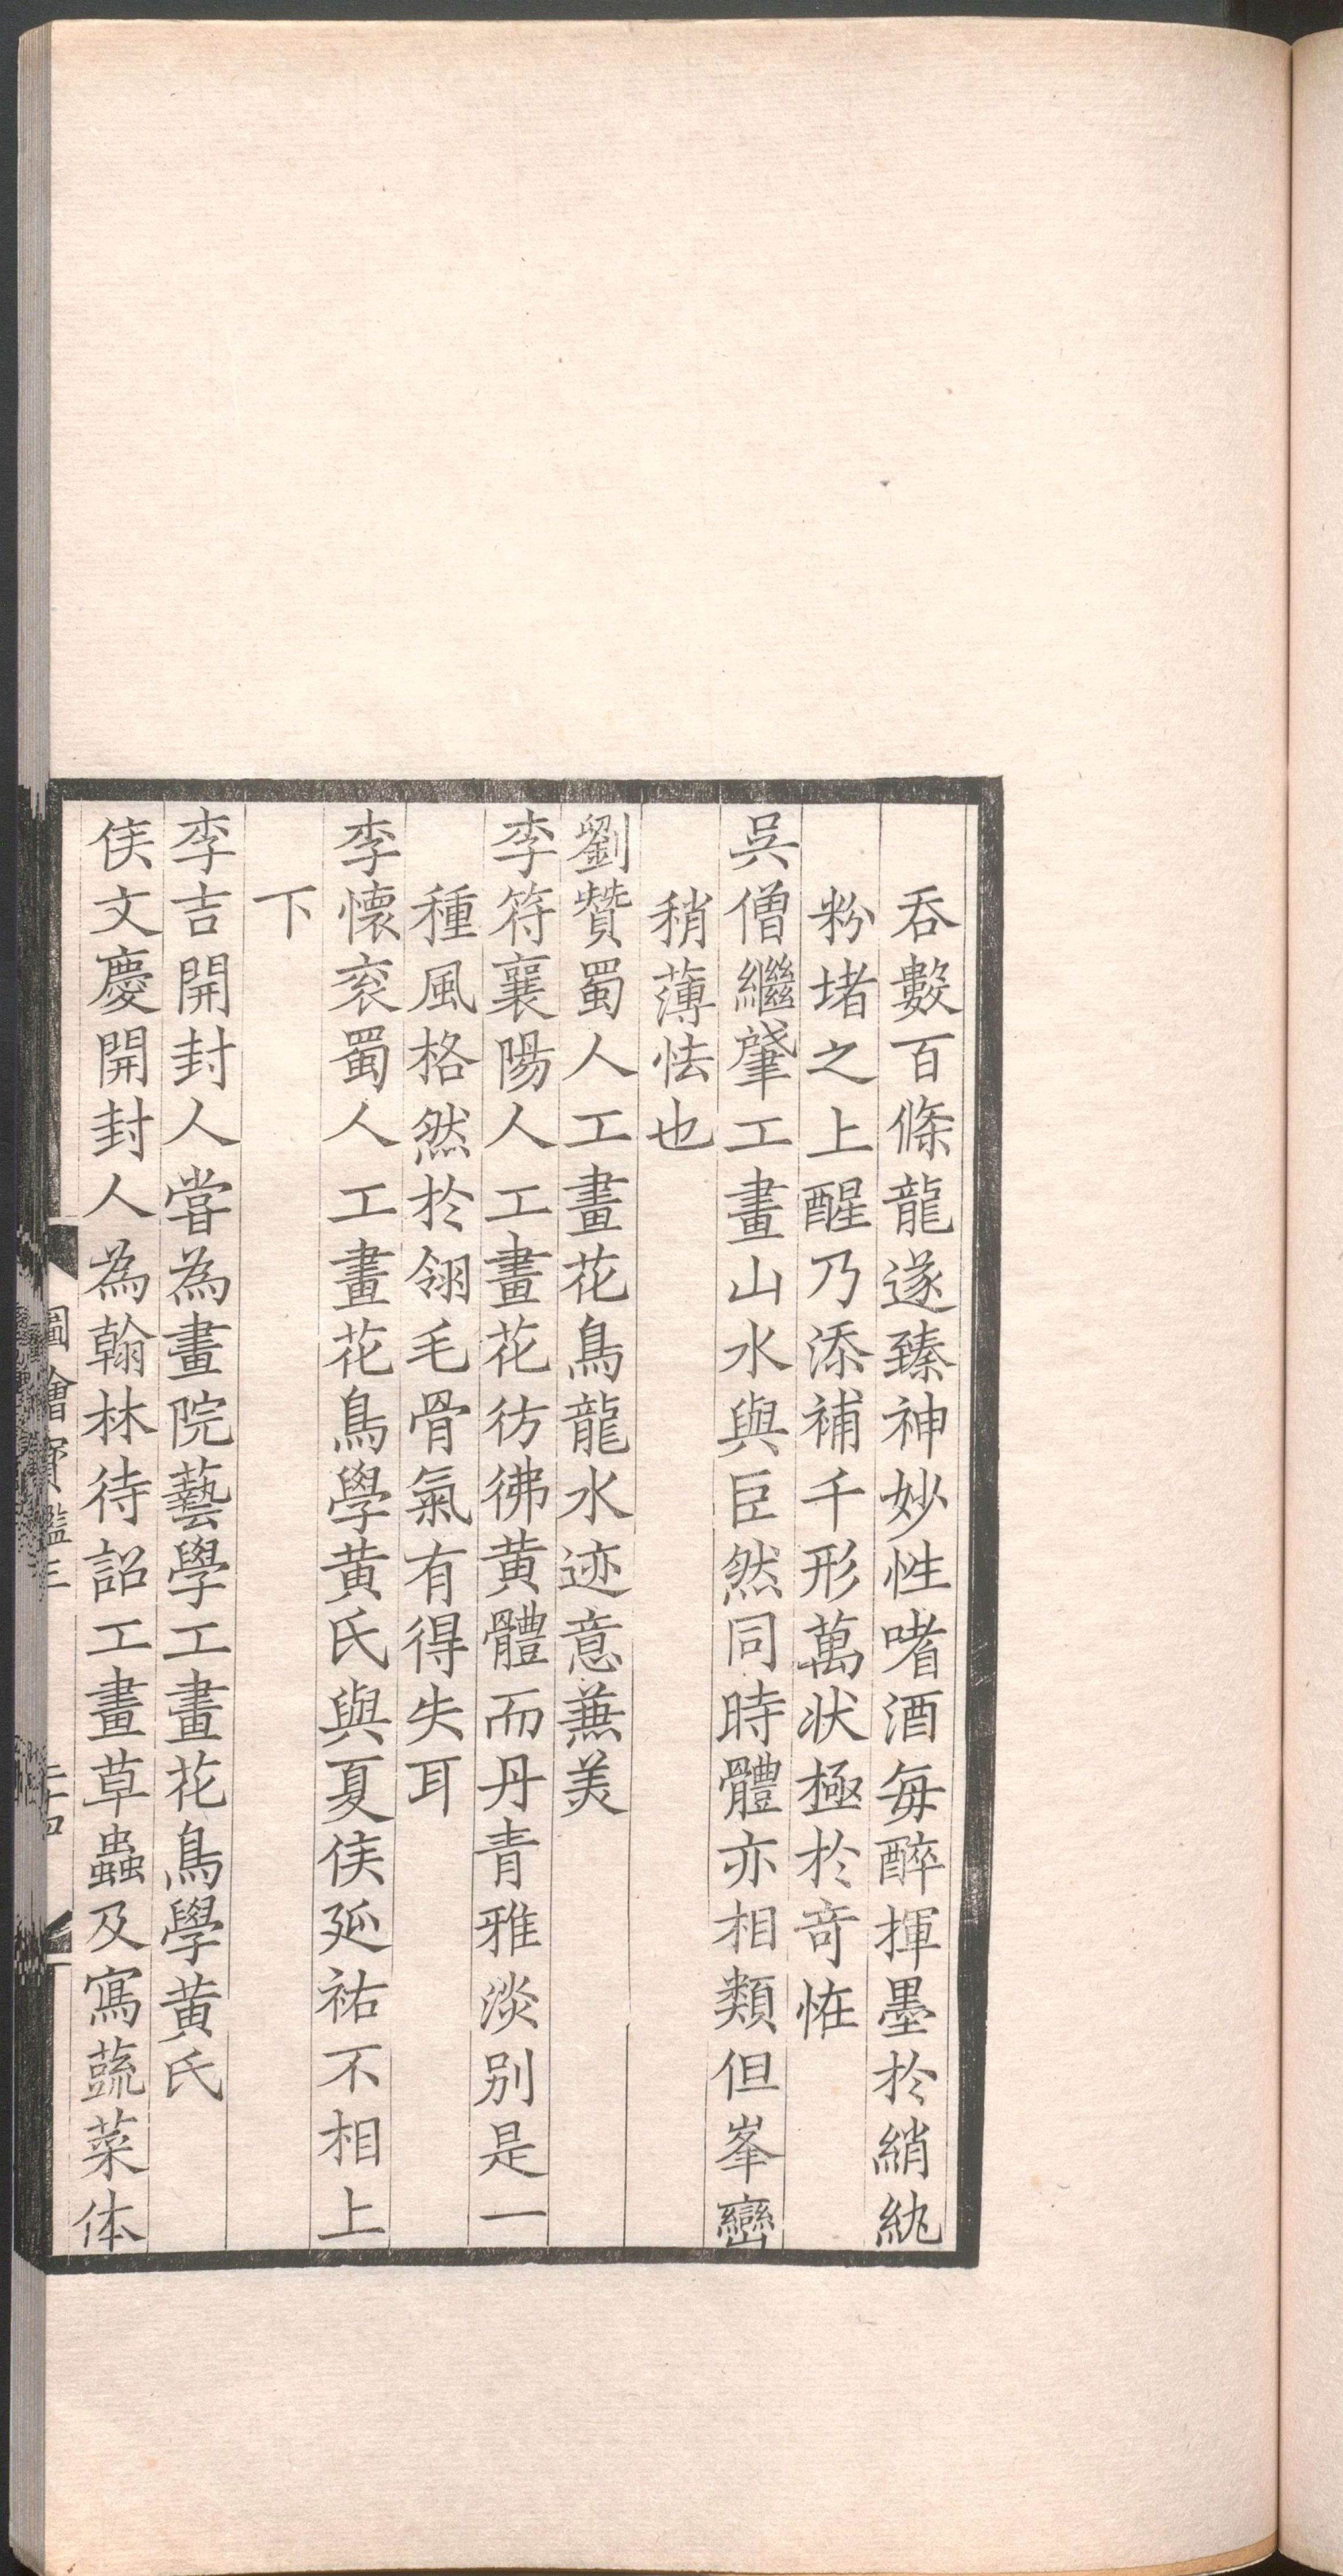 吞數百條龍遂臻神妙性嗜酒每醉揮墨於綃紈
粉堵之上醒乃添補千形萬状極於竒恠
吳僧繼肈工畫山水與巨然同時體亦相類但峯巒
稍薄怯也
劉贊蜀人工畫花鳥龍水迹意蒹美
李符襄陽人工畫花彷彿黄體而丹青雅淡别是一
種風格然於翎毛骨氣有得失耳
李懐衮蜀人工畫花鳥學黄氏與夏侯延祐不相上
下
李吉開封人嘗為畫院藝學工畫花鳥學黄氏
侯文慶開封人為翰林待詔工畫草蟲及寫蔬菜体
圖繪寳鑑三